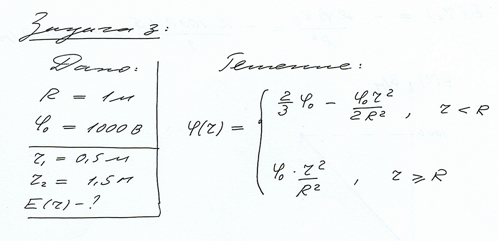 Задача 3:
Дано:
R = 1 м
φ₀ = 1000 В
r₁ = 0,5 м
r₂ = 1,5 м
E(r) - ?
Решение:
φ(r) = { 2/3 φ₀ - φ₀r²/2R² , r < R
φ₀ · r²/R² , r ⩾ R